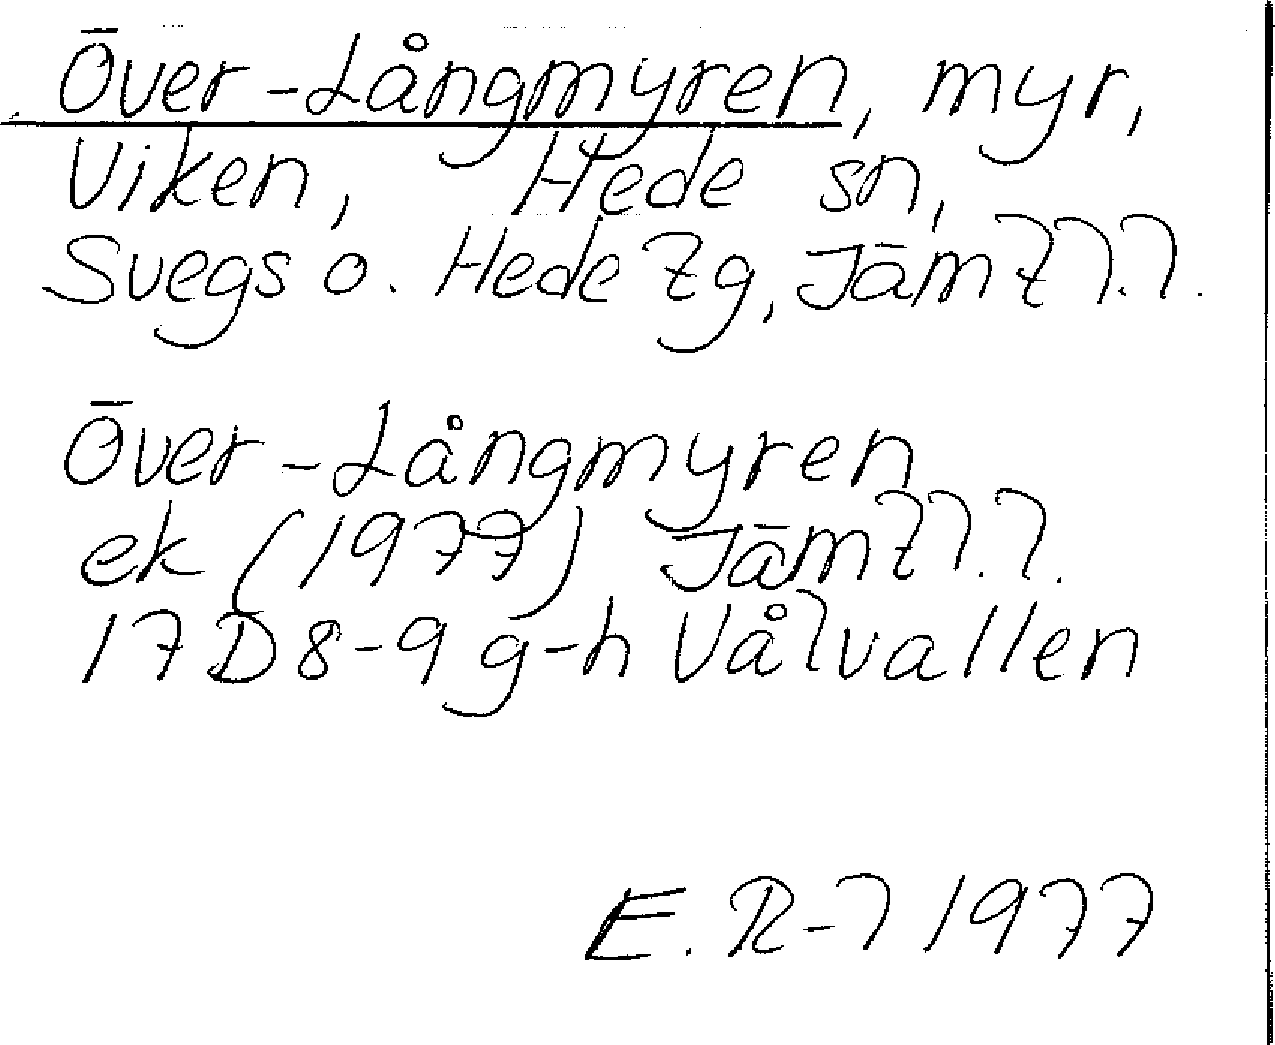 Över-Långmyren, myr,
Viken, Hede sn,
Svegs o. Hede tg, Jämtl.l.
Över-Långmyren
ek (1977) Jämtl.l.
17D8-9 g-h Vålvallen
E. R-l 1977